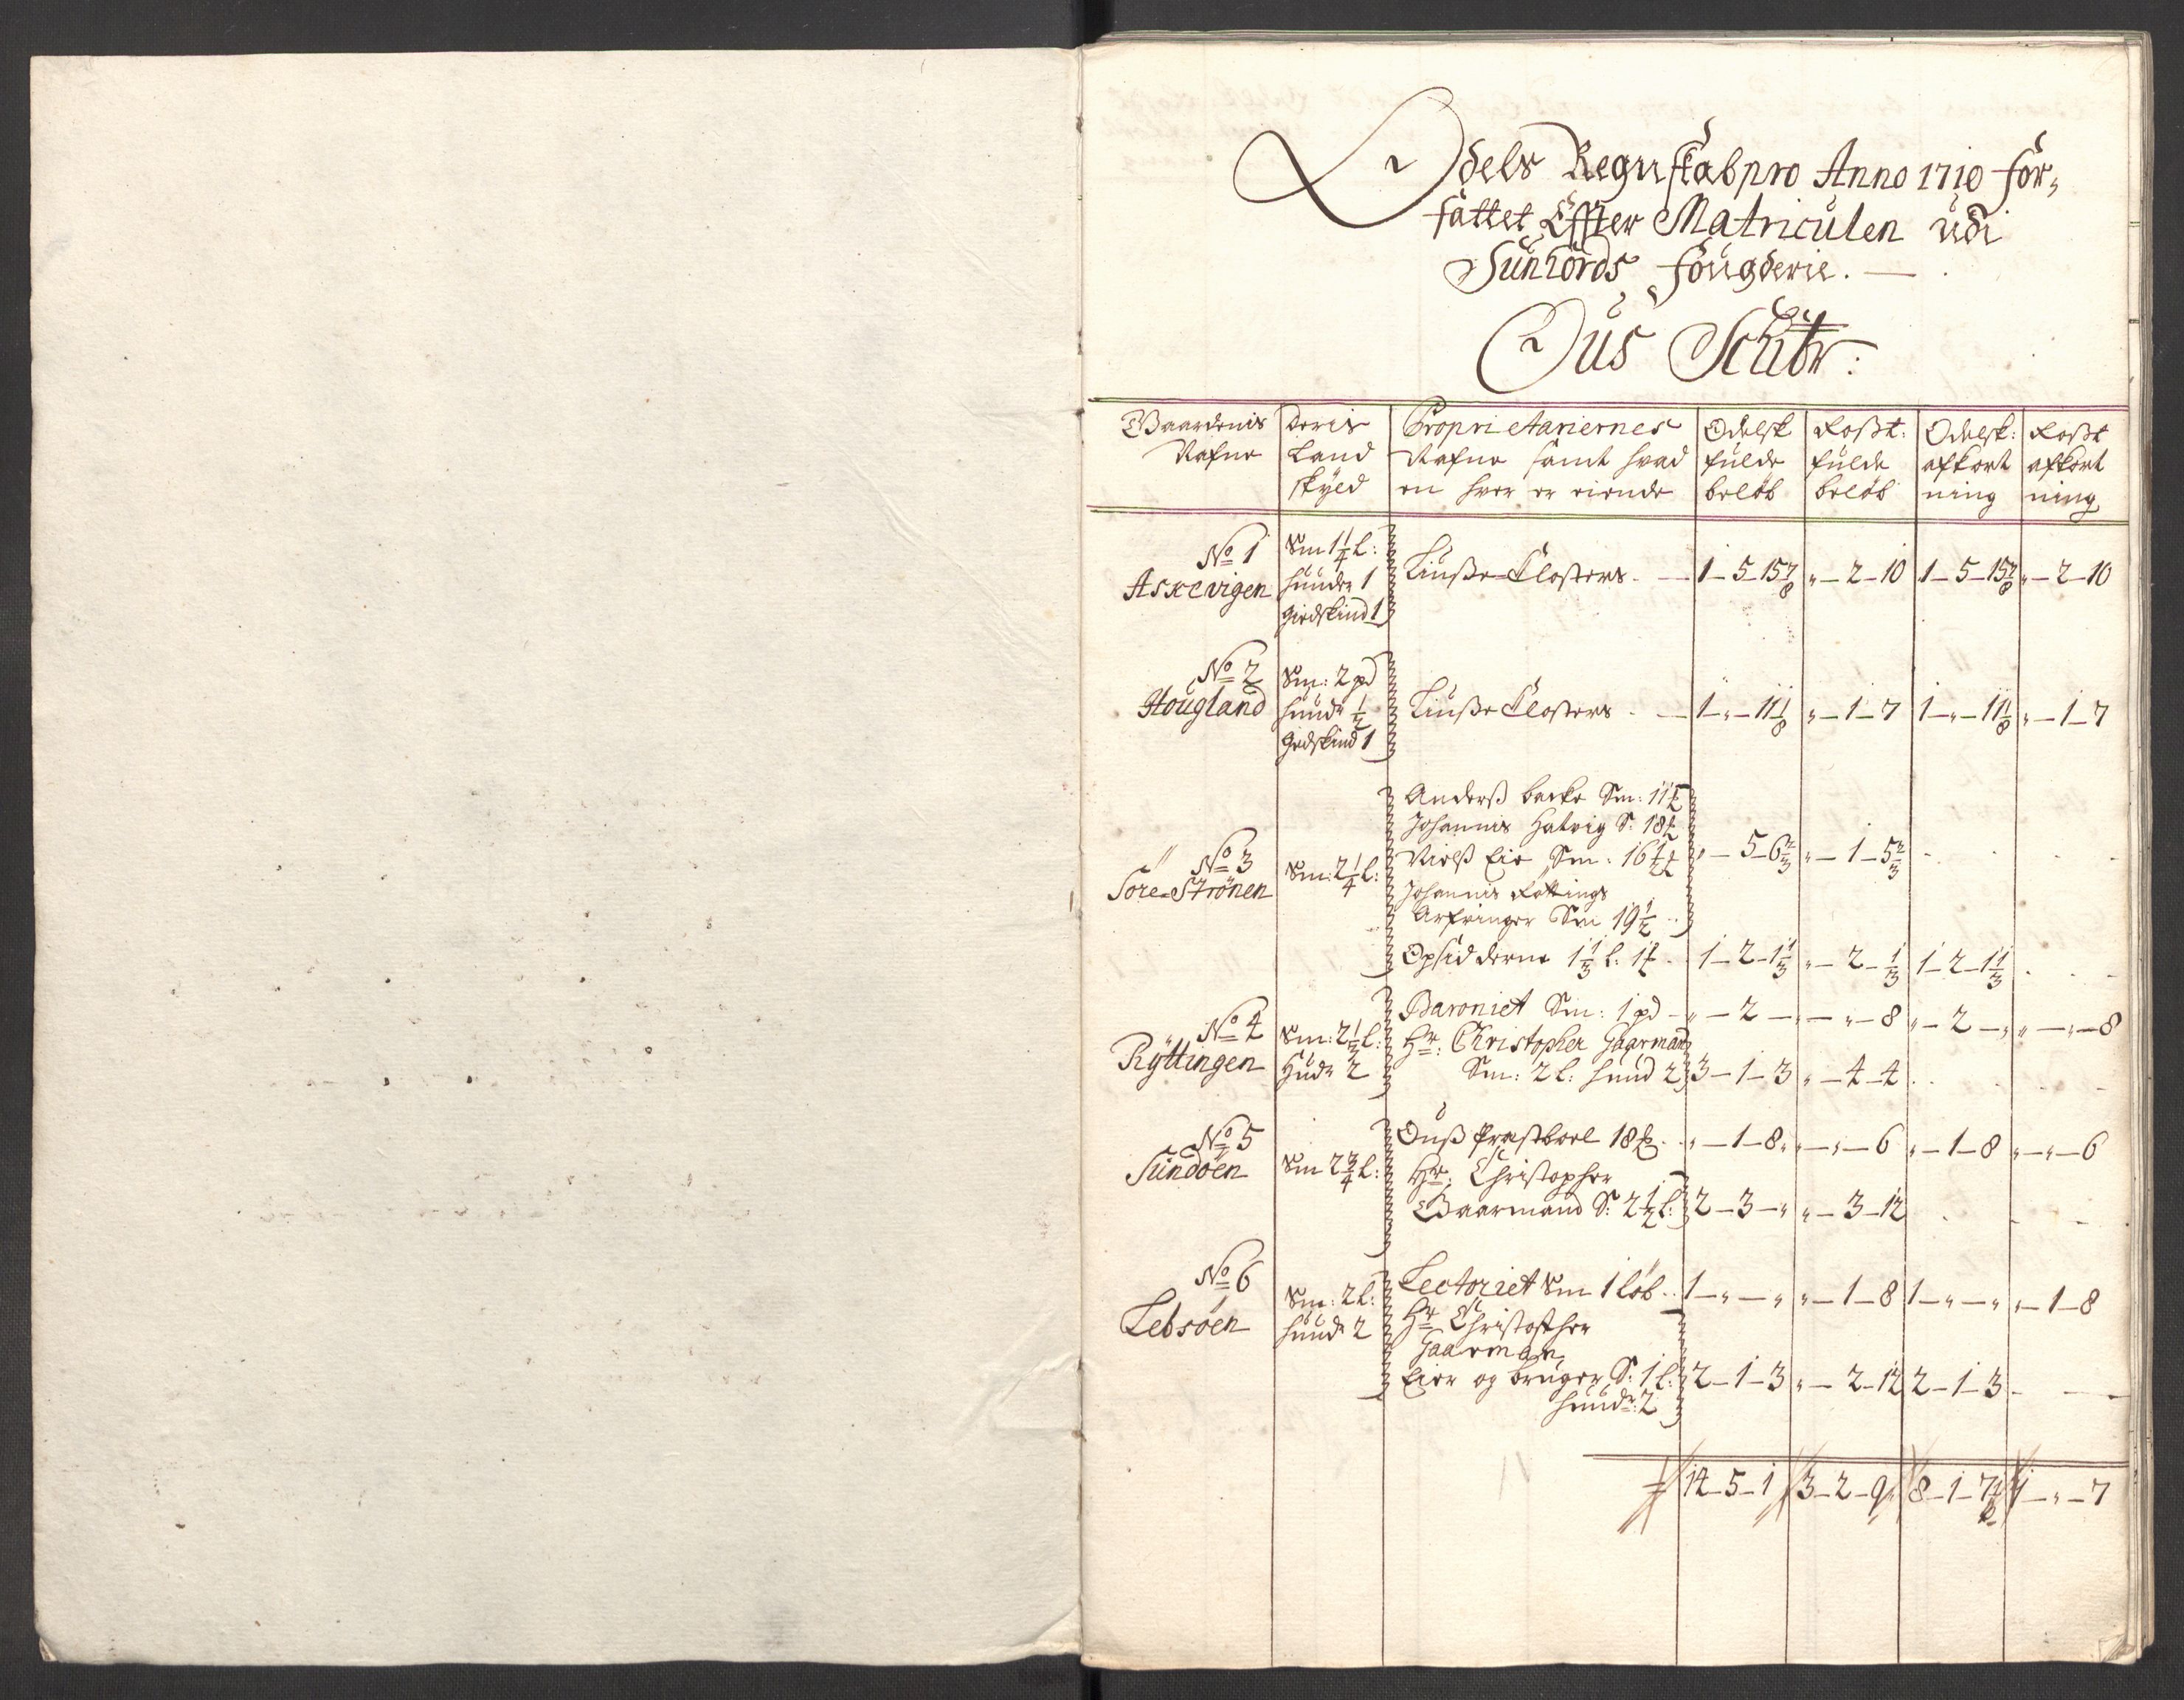 Odels Regnskab pro Anno 1710 for-
fattet Effter Matriculen udi
Sunhords fougderie.
Ous Schibr:
Gaardenis Nafne
Deris Land skyld
Proprietariernes Nafne samt hvad en hver er eiende
Odelsk fulde beløb
Roßt: fulde beløb
Odelsk: afkort ning
Roßt afkort ning
No 1 Askevigen
Sm 1 1/4 l:
huuder 1
giedskind 1
Liuße Closters - 1-5-15 7/8 „-2-10 1-5-15 7/8 „-2-10
No 2 Hougland
Sm: 2 pd
huude 1/2
gedskind 1
Liuße Closters - 1-„-11 1/8 „-1-7 1-„-11 1/8 „-1-7
No 3 Søre-Strønen
Sm: 2 1/4 l:
Anderß backe Sm: 11 ℔
Johannis Hatvig S: 18 ℔
Nielß Eie Sm: 16 1/2 ℔ „-5-6 2/3 „-1-5 2/3
Johannis Røttings
Arfvinger Sm 19 1/2
Opsidderne 1 1/3 l: 1 ℔ 1-2-1 1/3 „-2-1/3 1-2-1 1/3
No 4 Ryttingen
Sm: 2 1/3 l:
Hude 2
Baroniet Sm: 1 pd „-2-„ „-„-8 „-2-„ „-„-8
Hr: Christopher Gaarmand
Sm: 2 l: huud 2 3-1-3 „-4-4
No 5 Sundøen
Sm 2 3/4 l:
Ouß Præstboel 18 ℔ „-1-8 „-„-6 „-1-8 „-„-6
Hr: Christopher
Gaarmand S: 2 1/2 l: 2-3-„ „-3-12
No 6 Lebsøen
Sm: 2 l:
huude 2
Lectoriet Sm 1 løb 1-„-„ „-1-8 1-„-„ „-1-8
Hr Christopher
Gaarman
Eier og bruger S: 1 l: 2-1-3 „-2-12 2-1-3
huudr: 2
14-5-1 3-2-9 8-1-7 1/3 1-„-7